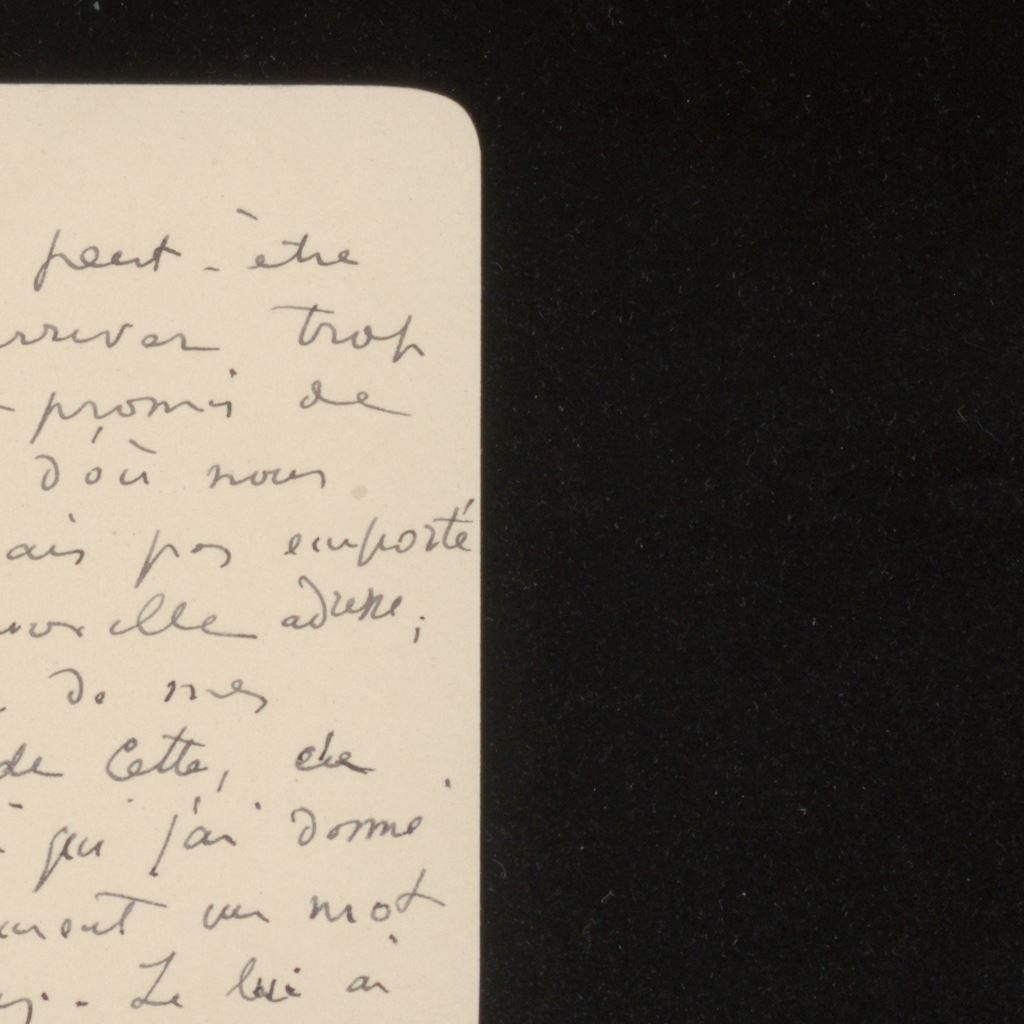 peut-être
rriver trop
promis de
d'où nous
ais pas emporté
uvelle adresse;
de mes
de Cette, de
à qui j'ai donné
ment un mot
. - Je lui ai